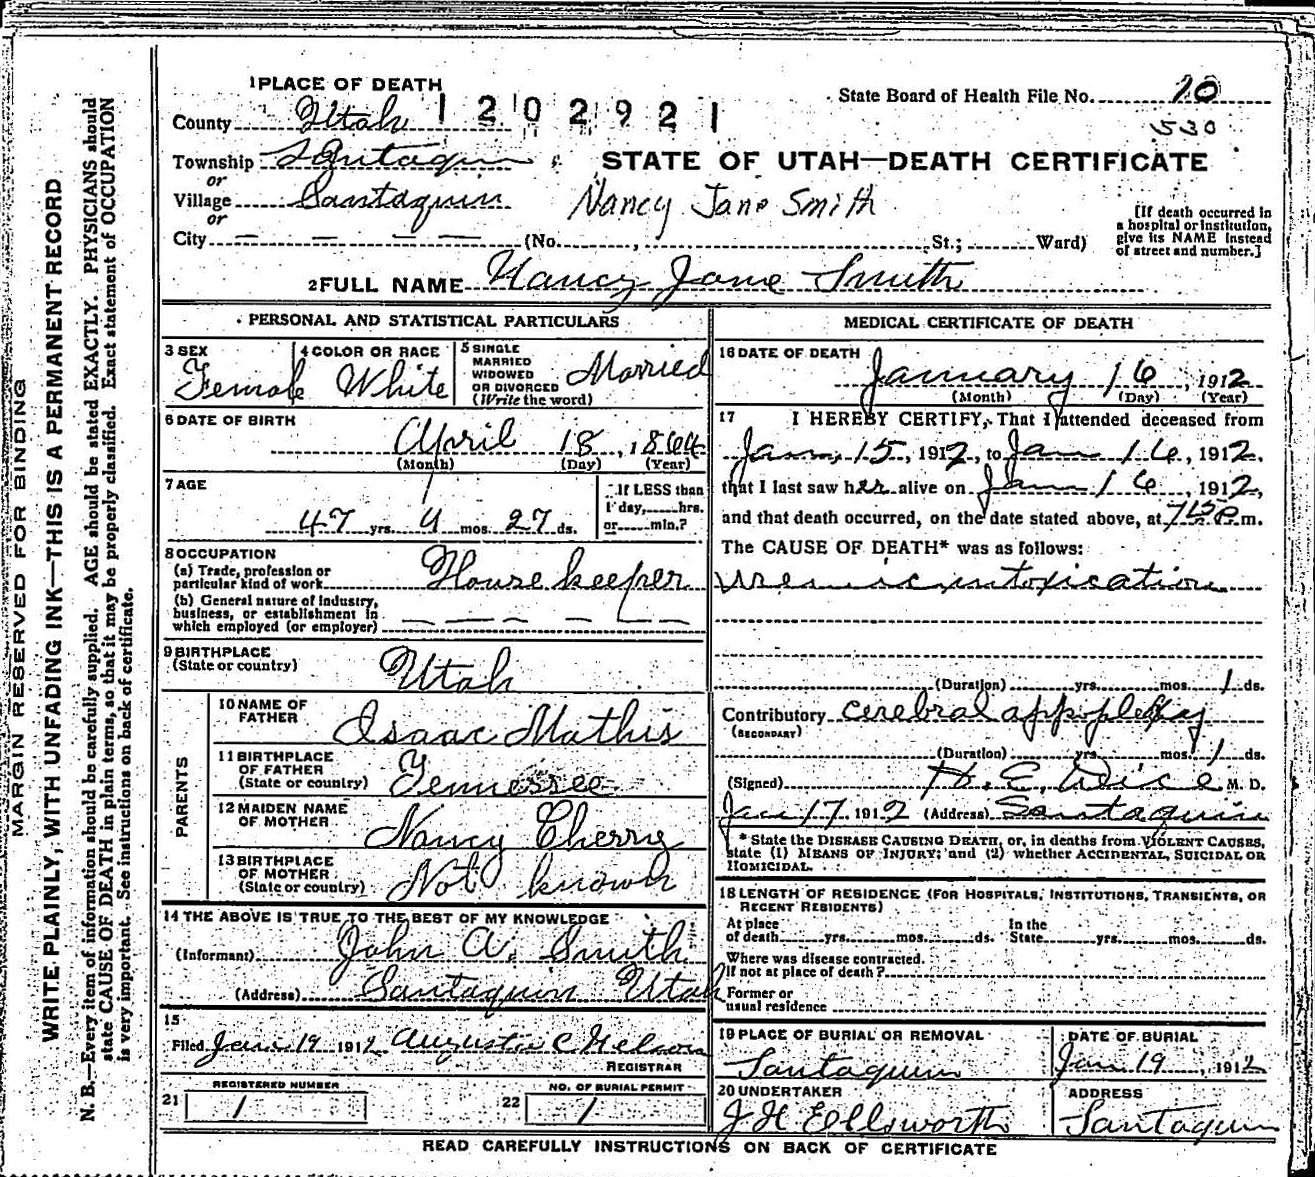 MARGIN RESERVED FOR BINDING
WRITE PLAINLY, WITH UNFADING INK—THIS IS A PERMANENT RECORD
N. B.—Every item of information should be carefully supplied. AGE should be stated EXACTLY. PHYSICIANS should
state CAUSE OF DEATH in plain terms, so that it may be properly classified. Exact statement of OCCUPATION
is very important. See instructions on back of certificate.
1 PLACE OF DEATH
1202921
State Board of Health File No. 10
530
County Utah
Township Santaquin
or
STATE OF UTAH—DEATH CERTIFICATE
Village Santaquin
Nancy Jane Smith
or
City — — — — (No. , St.; Ward)
[If death occurred in
a hospital or institution,
give its NAME instead
of street and number.]
2 FULL NAME Nancy Jane Smith
PERSONAL AND STATISTICAL PARTICULARS
3 SEX
Female
4 COLOR OR RACE
White
5 SINGLE
MARRIED
WIDOWED
OR DIVORCED
(Write the word)
Married
6 DATE OF BIRTH
April 18, 1864
(Month) (Day) (Year)
7 AGE
47 yrs. 9 mos. 27 ds.
If LESS than
1 day, hrs.
or min.?
8 OCCUPATION
(a) Trade, profession or
particular kind of work Housekeeper
(b) General nature of industry,
business, or establishment in
which employed (or employer) — — — — — —
9 BIRTHPLACE
(State or country) Utah
PARENTS
10 NAME OF
FATHER Isaac Mathis
11 BIRTHPLACE
OF FATHER
(State or country) Tennessee
12 MAIDEN NAME
OF MOTHER Nancy Cherry
13 BIRTHPLACE
OF MOTHER
(State or country) Not known
14 THE ABOVE IS TRUE TO THE BEST OF MY KNOWLEDGE
(Informant) John A. Smith
(Address) Santaquin Utah
15
Filed Jan 19 1912 Augustin C Nelson
REGISTRAR
REGISTERED NUMBER
21 1
NO. OF BURIAL PERMIT
22 1
MEDICAL CERTIFICATE OF DEATH
16 DATE OF DEATH
January 16, 1912
(Month) (Day) (Year)
17 I HEREBY CERTIFY, That I attended deceased from
Jan, 15, 1912, to Jan 16, 1912,
that I last saw her alive on Jan 16, 1912,
and that death occurred, on the date stated above, at 715 P m.
The CAUSE OF DEATH* was as follows:
uremic intoxication
(Duration) yrs. mos. 1 ds.
Contributory cerebral appoplexy
(SECONDARY)
(Duration) yrs. mos. 1 ds.
(Signed) H. E. M. D.
Jan 17 1912 (Address) Santaquin
* State the DISEASE CAUSING DEATH, or, in deaths from VIOLENT CAUSES,
state (1) MEANS OF INJURY; and (2) whether ACCIDENTAL, SUICIDAL OR
HOMICIDAL.
18 LENGTH OF RESIDENCE (FOR HOSPITALS, INSTITUTIONS, TRANSIENTS, OR
RECENT RESIDENTS)
At place
of death yrs. mos. ds.
In the
State yrs. mos. ds.
Where was disease contracted.
If not at place of death?
Former or
usual residence
19 PLACE OF BURIAL OR REMOVAL
Santaquin
DATE OF BURIAL
Jan 19, 1912
20 UNDERTAKER
J H Ellsworth
ADDRESS
Santaquin
READ CAREFULLY INSTRUCTIONS ON BACK OF CERTIFICATE